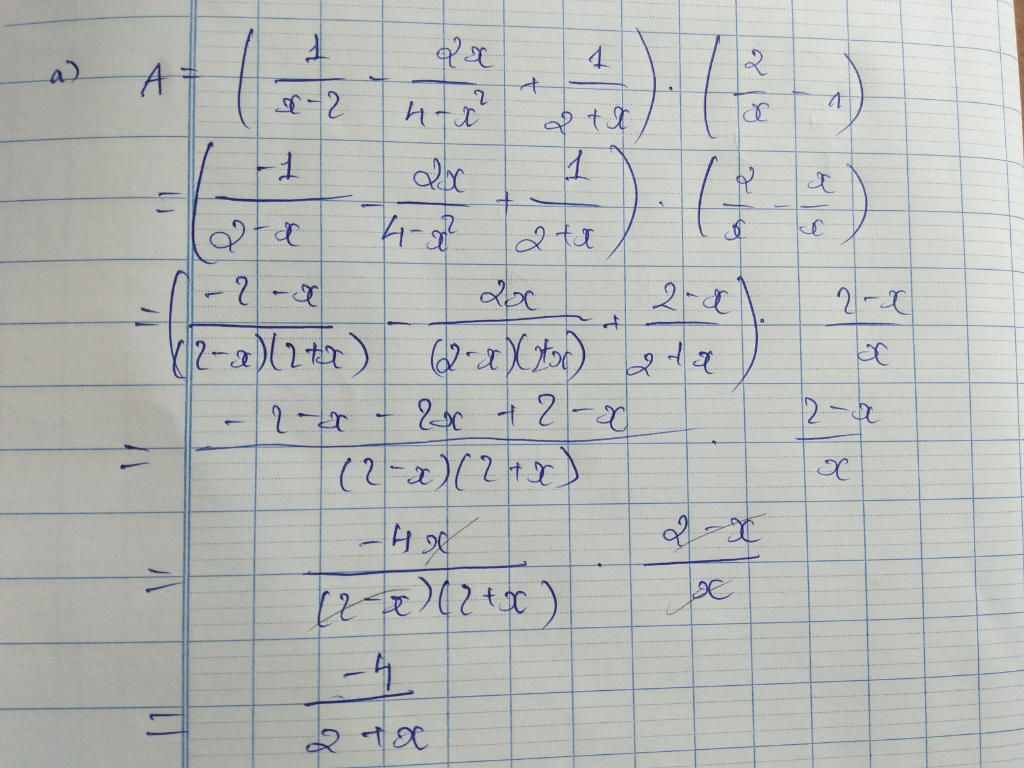 a) A = (1/(x-2) - 2x/(4-x²) + 1/(2+x)) . (2/x - 1)
= (-1/(2-x) - 2x/(4-x²) + 1/(2+x)) . (2/x - x/x)
= ((-2-x)/((2-x)(2+x)) - 2x/((2-x)(2+x)) + (2-x)/(2+x)) . (2-x)/x
= (-2-x-2x+2-x)/((2-x)(2+x)) . (2-x)/x
= -4x/((2-x)(2+x)) . (2-x)/x
= -4/(2+x)